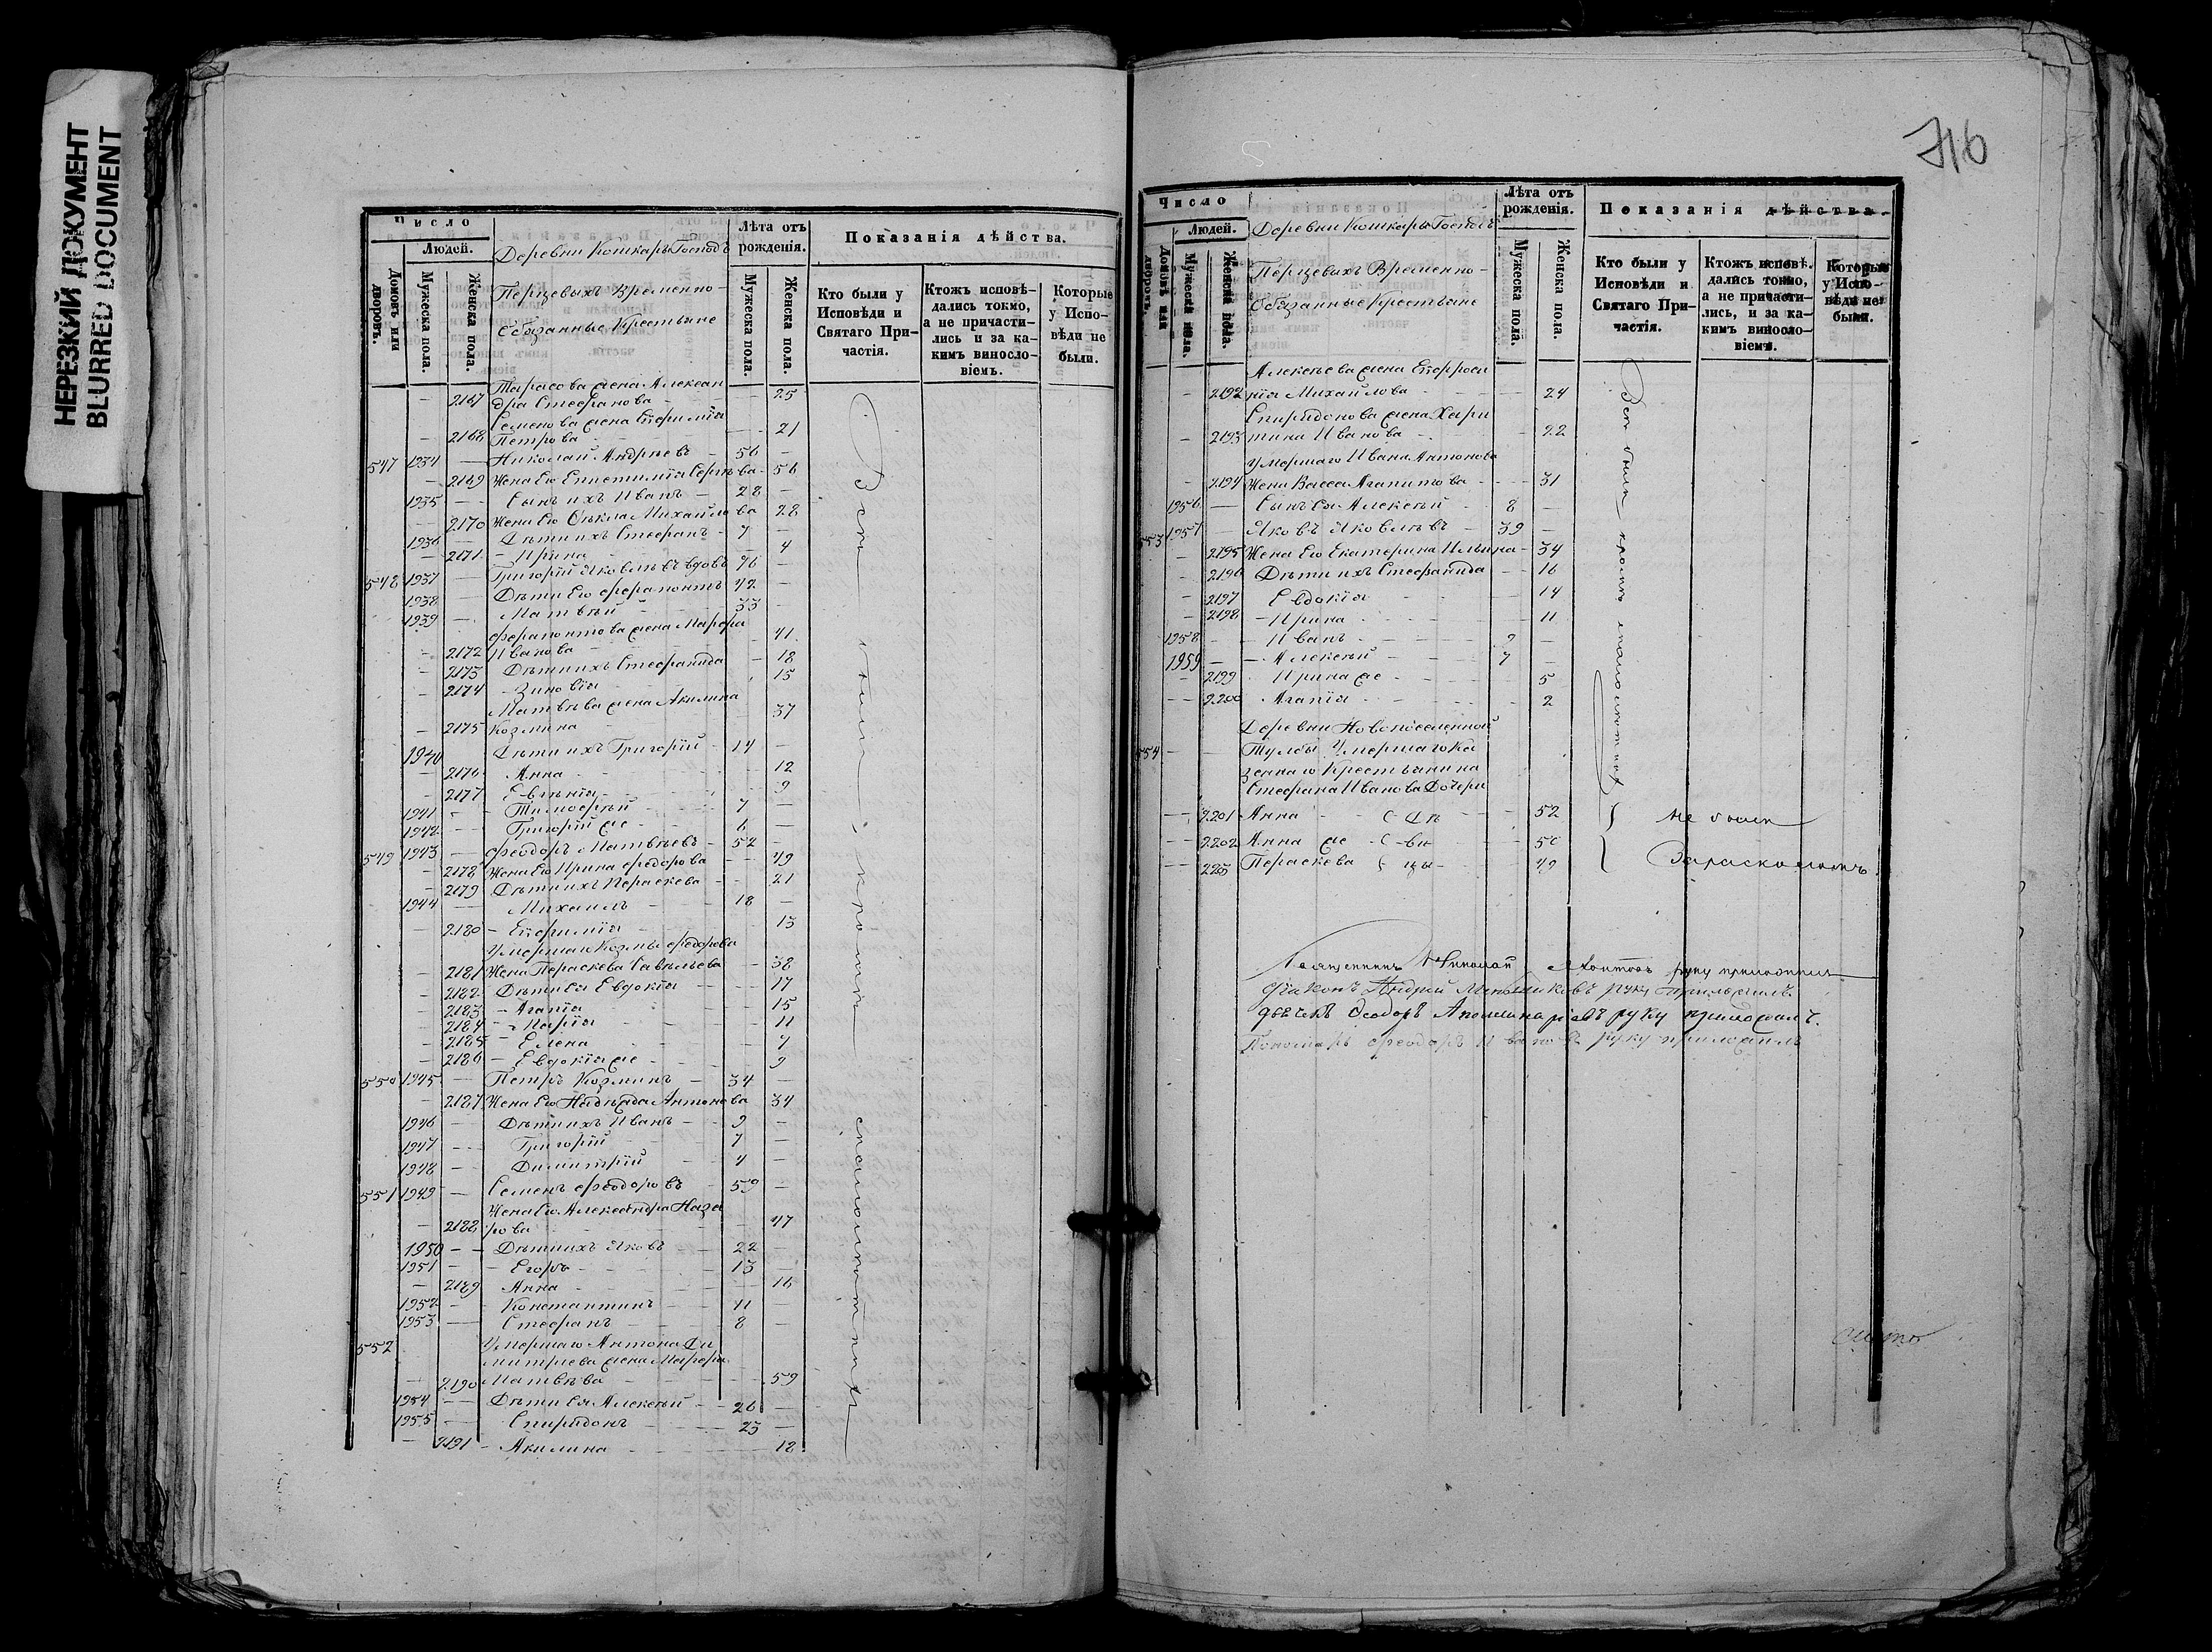 НЕРЕЗКИЙ ДОКУМЕНТ
BLURRED DOCUMENT
Число
Людей.
Домовъ или дворовъ.
Мужеска пола.
Женска пола.
Деревни Кошкаръ Господъ
Перцевыхъ Временно-
обязанные Крестьяне
Лѣта отъ рожденія.
Мужеска пола.
Женска пола.
Показанія дѣйства.
Кто были у Исповѣди и Святаго Причастія.
Ктожъ исповѣдались токмо, а не причастились и за какимъ винословіемъ.
Которые у Исповѣди не были.
Тарасова жена Алексан
— 2167 дра Стефанова — — 25
Семенова жена Евфимія
— 2168 Петрова — — 21
547 1934 — Николай Андреевъ — 56 —
— 2169 Жена Его Епистимія Сергѣева — 56
1935 — — Сынъ ихъ Иванъ — 28 —
— 2170 Жена Его Ѳекла Михайлова 28
1936 — Дѣти ихъ Стефанъ — 7 —
— 2171 — Ирина — — 4
548 1937 — Григорій Яковлевъ вдовъ 76 —
1938 — Дѣти Его Ферапонтъ 42 —
1939 — Матвѣй 33 —
Ферапонтова жена Марфа
— 2172 Иванова — — 41
— 2173 Дѣти ихъ Стефанида — 18
— 2174 — Зиновія 15
Матвѣева жена Акилина
— 2175 Козмина 37
1940 Дѣти ихъ Григорій — 14 —
— 2176 Анна — 12
— 2177 Евгенія — 9
1941 — — Тимофей 7 —
1942 — — Григорій же — 6 —
549 1943 — Феодоръ Матвѣевъ — 52 —
— 2178 Жена Его Ирина Федорова — 49
— 2179 Дѣти ихъ Параскева — — 21
1944 — Михаилъ — 18 —
— 2180 — Евфимія — 13
Умершаго Козмы Федорова
— 2181 Жена Параскева Савельева — 38
— 2182 Дѣти Ея Евдокія — — 17
— 2183 — Агапія 15
— 2184 — Марія 11
— 2185 — Елена — 7
— 2186 — Евдокія же — — 9
550 1945 — Петръ Козминъ — 34 —
— 2187 Жена Его Надежда Антонова 34
1946 — Дѣти ихъ Иванъ — — 9 —
1947 — Григорій — 7 —
1948 — — Димитрій — 4 —
551 1949 — Семенъ Феодоровъ — 59 —
Жена Его Александра Наза
— 2188 рова — — 47
1950 — — Дѣти ихъ Яковъ — 22 —
1951 — — Егоръ — 13 —
— 2189 Анна — — 16
1952 — — Константинъ — — 11 —
1953 — — Стефанъ — — 8 —
552 Умершаго Антона Ди
митріева жена Марфа
— 2190 Матвѣева — — 59
1954 — — Дѣти Ея Алексѣй — — 26 —
1955 — Спиридонъ — — 23 —
— 2191 — Акилина — — 18
Всѣ были кромѣ смалолѣтныхъ
716
Число
Людей.
Домовъ или дворовъ.
Мужеска пола.
Женска пола.
Деревни Кошкары Господъ
Перцевыхъ Временно-
обязанные Крестьяне
Лѣта отъ рожденія.
Мужеска пола.
Женска пола.
Показанія дѣйства.
Кто были у Исповѣди и Святаго Причастія.
Ктожъ исповѣдались токмо, а не причастились, и за какимъ винословіемъ.
Которые у Исповѣди не были.
Алексѣева жена Евфроси
— 2192 нія Михайлова — — 24
Спиридонова жена Хари
— 2193 тина Иванова — — 22
Умершаго Ивана Антонова
— 2194 Жена Васса Агапитова — — 31
1956 — Сынъ Ея Алексѣй 8 —
553 1957 — Яковъ Яковлевъ — 39 —
— 2195 Жена Его Екатерина Ильина — 34
— 2196 Дѣти ихъ Стефанида — — 16
— 2197 Евдокія — 14
— 2198 — Ирина — 11
1958 — — Иванъ — 9 —
1959 — — Алексѣй — 7 —
— 2199 Ирина же — 5
— — 2200 — Агапія — 2
Деревни Новопоселенной
554 — — Тулбы Умершаго Ка
зеннаго Крестьянина
Стефана Иванова Дочери
— — 2201 Анна — дѣ — 52
— — 2202 Анна же — ви — 50
— — 223 Параскева цы — 49
Всѣ были кромѣ смалолѣтныхъ
Не были
За расколомъ
Священникъ Николай руку приложилъ
Діаконъ Андрей Меньшиковъ руку приложилъ
дьячекъ Ѳеодоръ Аполлинаріевъ руку приложилъ.
Пономарь Феодоръ Ивановъ руку приложилъ